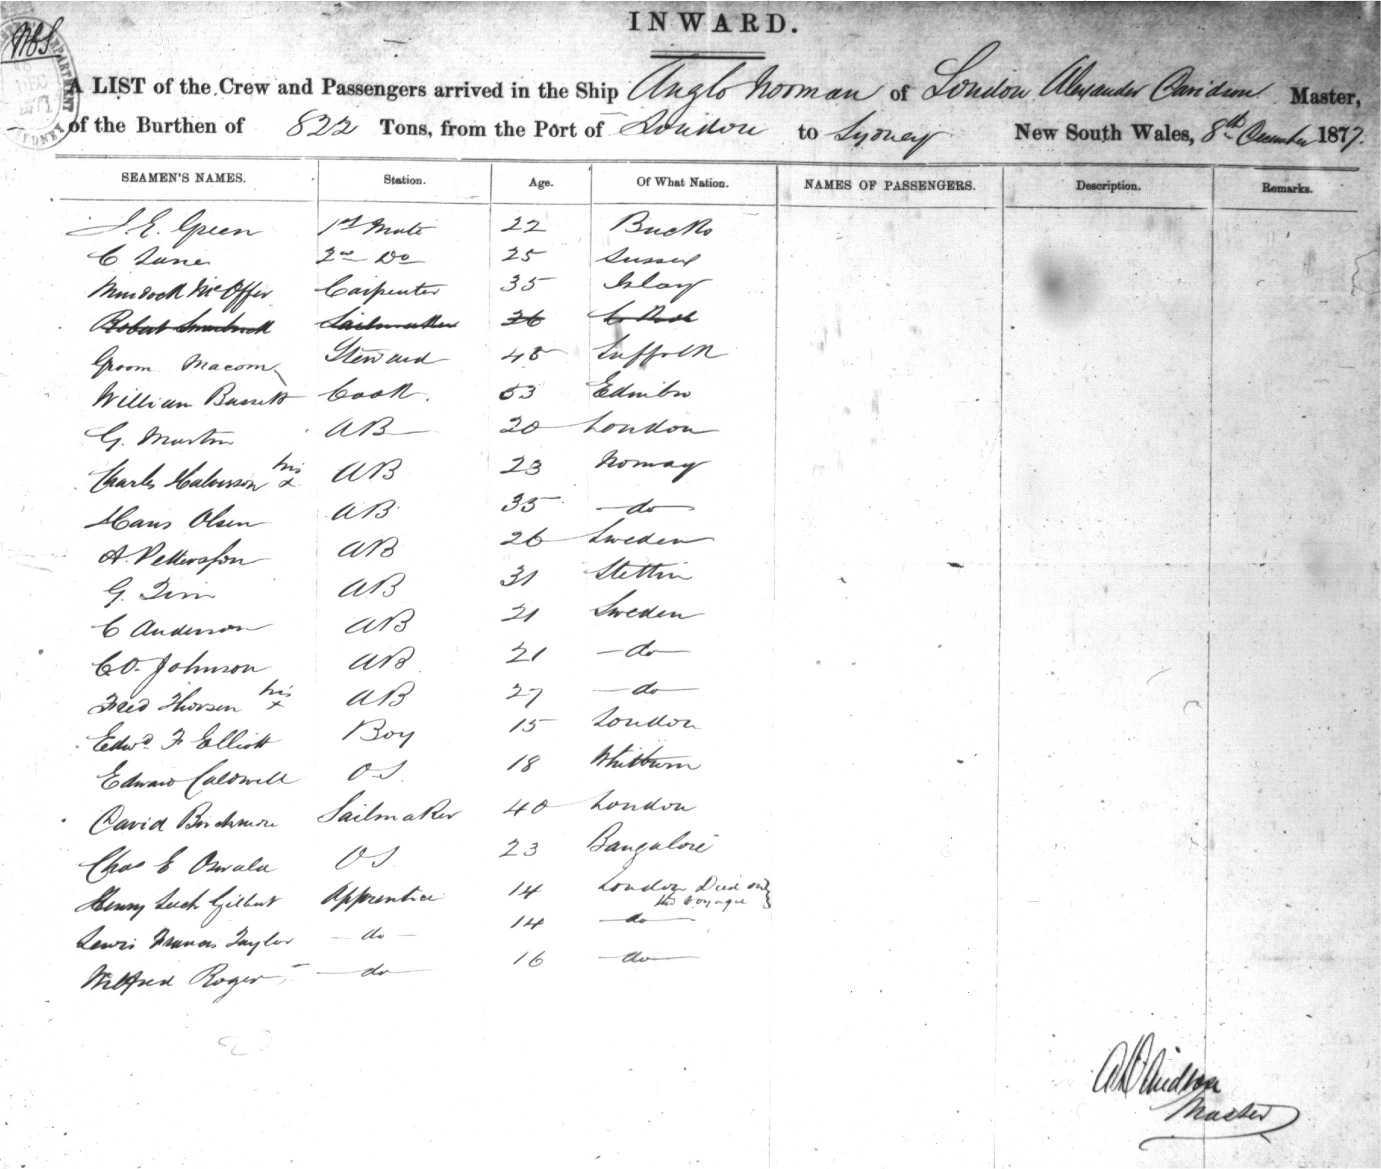 INWARD.
A LIST of the Crew and Passengers arrived in the Ship Anglo Norman of London Alexander Davidson Master,
of the Burthen of 822 Tons, from the Port of London to Sydney New South Wales, 8th December 1877.
SEAMEN'S NAMES. Station. Age. Of What Nation. NAMES OF PASSENGERS. Description. Remarks.
J. E. Green 1st Mate 22 Bucks
C 2nd Do 25 Sussex
Murdock Carpenter 35 Islay
Robert Sailmaker 26
Groom Macom Steward 48 Suffolk
William Bassett Cook. 53 Edinbro
G. Martin AB 20 London
Charles Halvorson his x AB 23 Norway
Hans Olsen AB 35 do
A. Pettersson AB 26 Sweden
G. AB 31 Stettin
C Anderson AB 21 Sweden
C O. Johnson AB 21 do
Fred Thorsen his x AB 27 do
Edwd F Elliott Boy 15 London
Edward Caldwell OS 18 Whitburn
David Sailmaker 40 London
Chas E Oswald OS 23 Bangalore
Henry Gilbert Apprentice 14 London Died on
the voyage
Lewis Francis Taylor do 14 do
Wilfred Roger do 16 do
A Davidson
Master